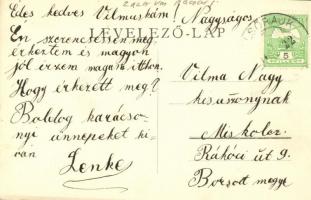 Édes kedves Vilmuskám!
Én szerencsésen meg
érkeztem és magyon
jól érzem magam itthon.
Hogy érkezett meg?
Boldog karácso
nyi ünnepeket ki
ván
Lenke
LEVELEZŐ-LAP
Nagyságos
Vilma Nagy
kisasszonynak
Miskolcz.
Rákóci út 9.
Borsod megye
5